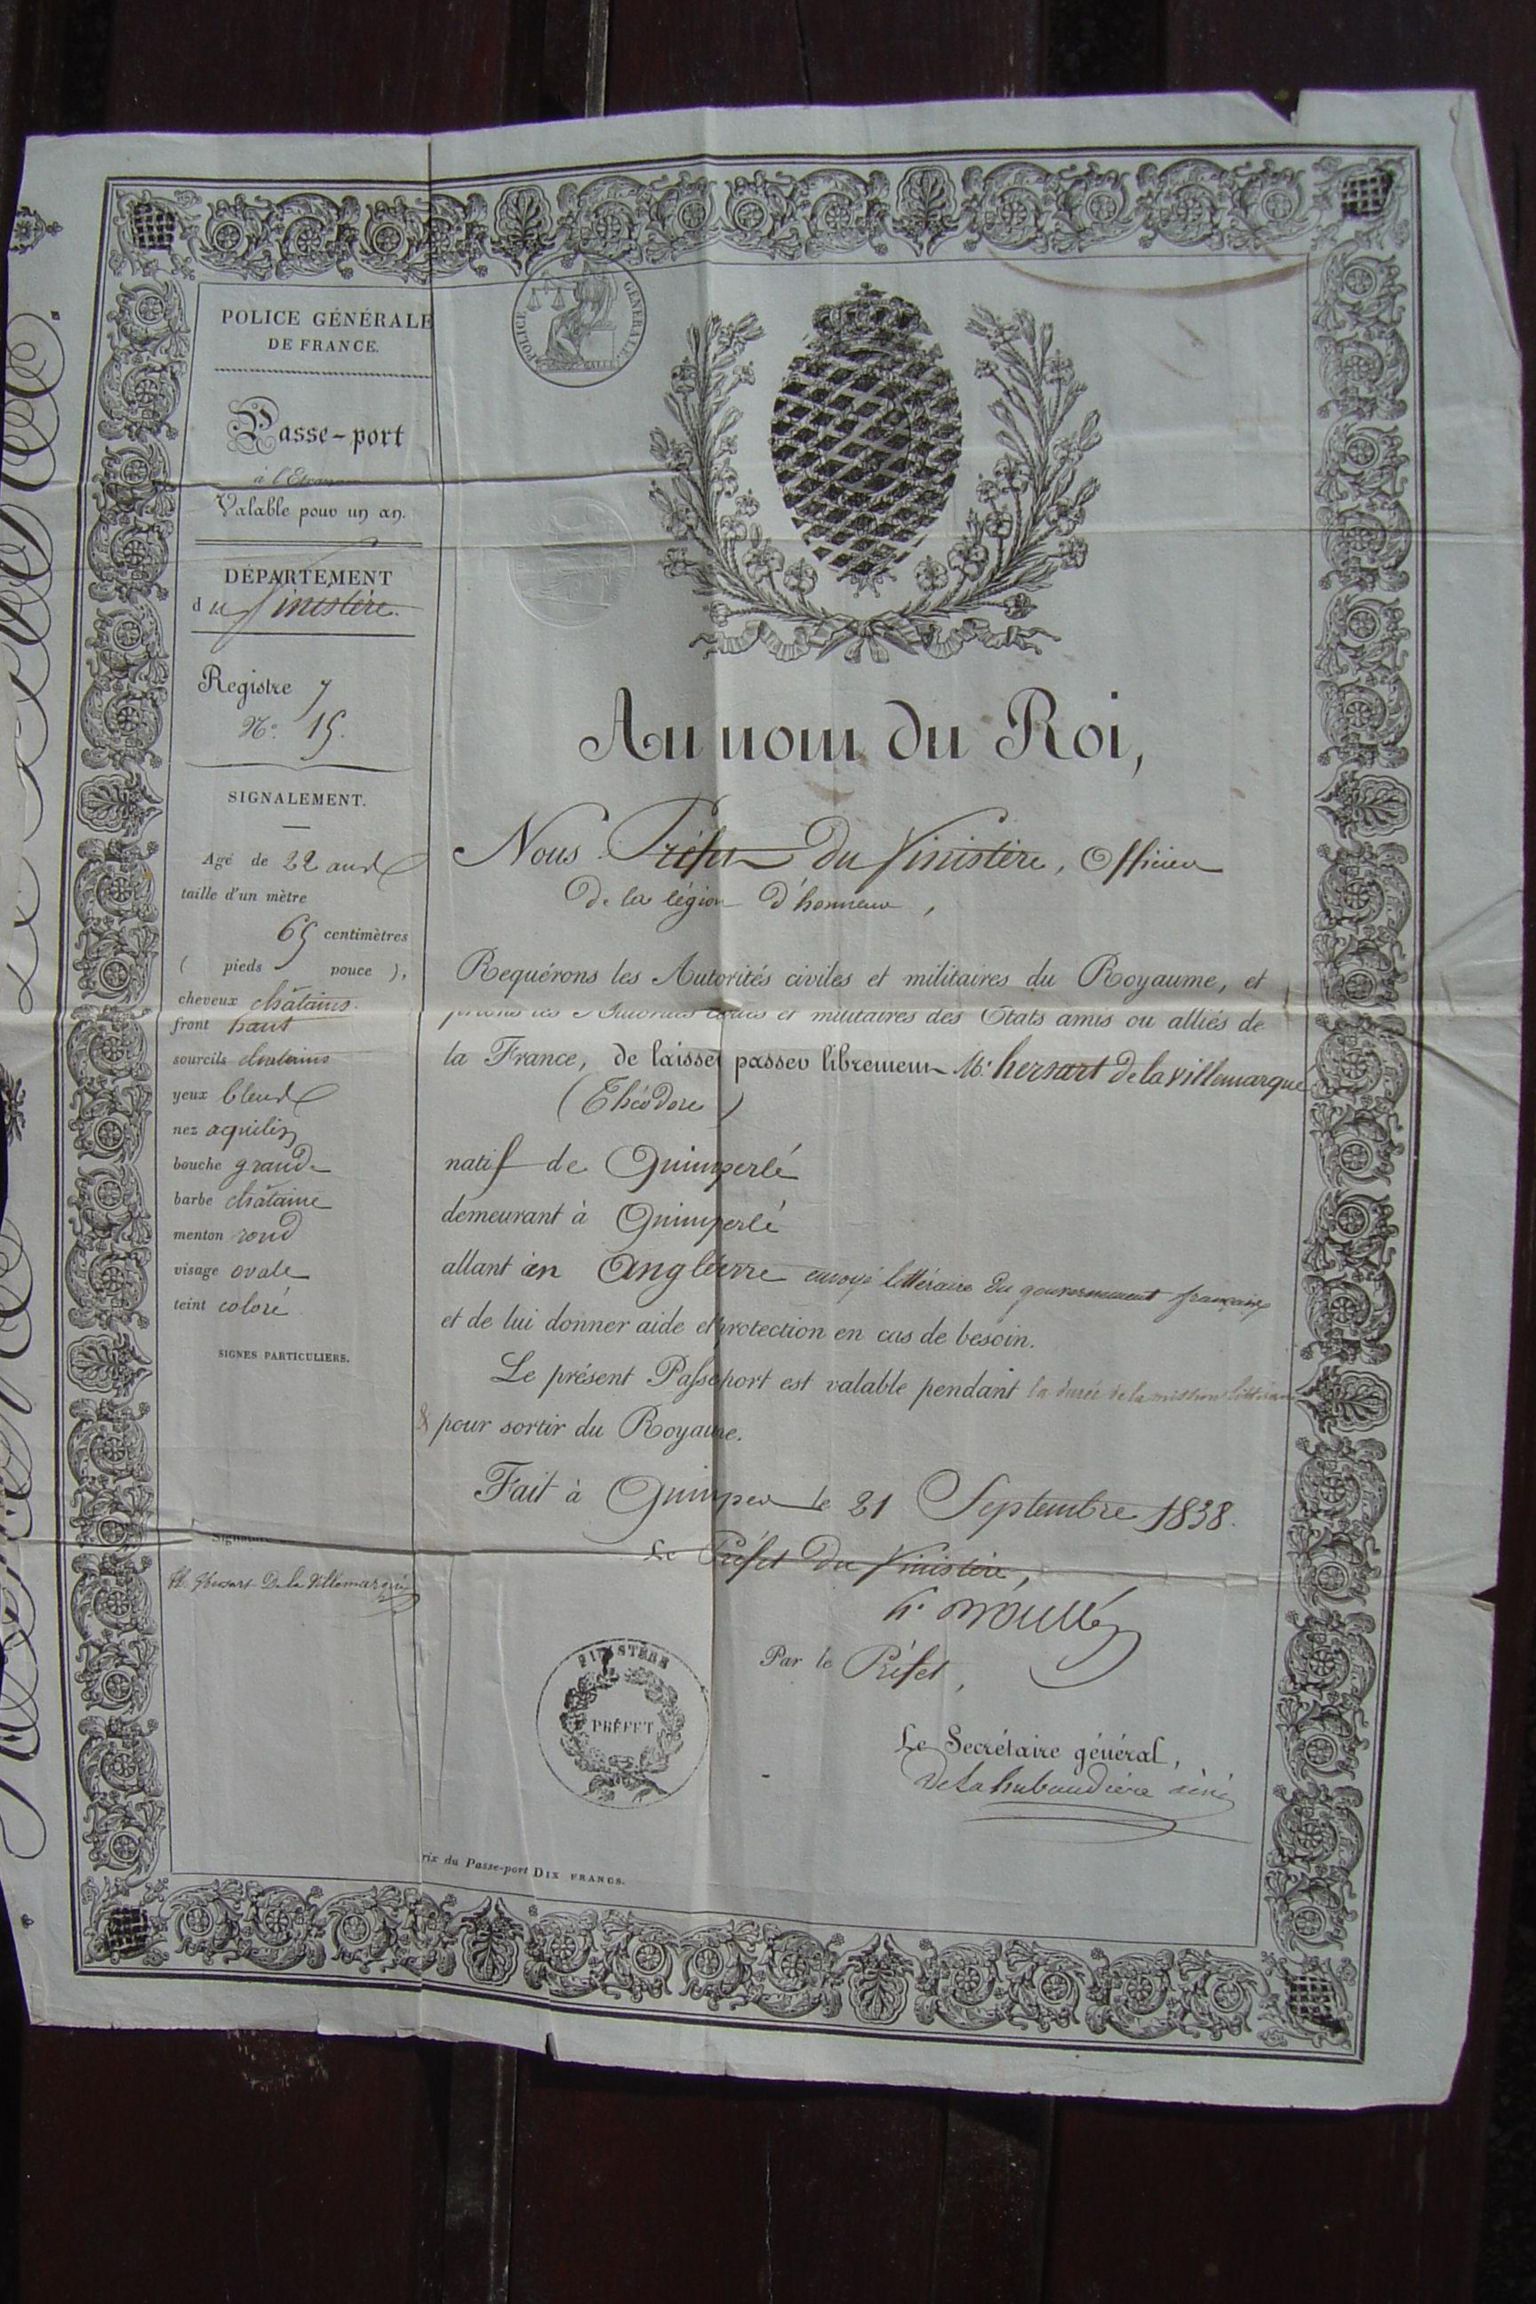 POLICE GÉNÉRALE
DE FRANCE.
Passe-port
à l'Etran
Valable pour un an.
DÉPARTEMENT
du finistère.
Registre 7
N.° 15.
SIGNALEMENT.
Agé de 22 ans
taille d'un mètre
65 centimètres
( pieds pouce ),
cheveux châtains.
front haut
sourcils chatains
yeux bleus
nez aquilin
bouche grande
barbe châtaine
menton rond
visage ovale
teint coloré
SIGNES PARTICULIERS.
Signature
Th. Hersart De la Villemarqué
POLICE GÉNÉRALE
Au nom du Roi,
Nous Préfet du finistère, Officier
de la légion d'honneur,
Requérons les Autorités civiles et militaires du Royaume, et
prions les Autorités civiles et militaires des Etats amis ou alliés de
la France, de laisser passer librement Mr. hersart de la villemarqué
(Théodore)
natif de Quimperlé
demeurant à Quimperlé
allant en Angleterre envoyé littéraire du gouvernement français
et de lui donner aide et protection en cas de besoin.
Le présent Passeport est valable pendant la durée de la mission littéraire
& pour sortir du Royaume.
Fait à Quimper le 21 Septembre 1838.
Le Préfet du finistère,
Par le Préfet,
Le Secrétaire général,
De La hubaudière
FINISTÈRE
PRÉFET
rix du Passe-port DIX FRANCS.